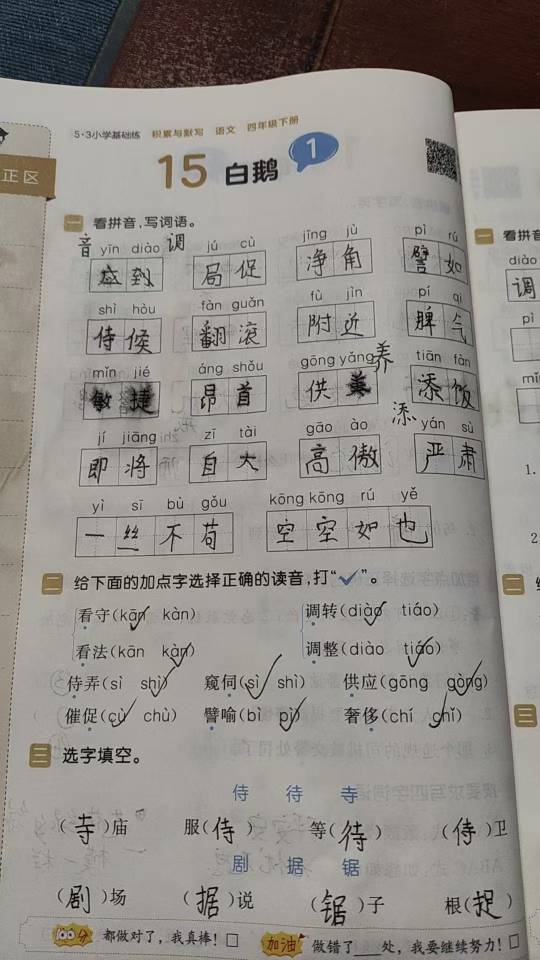 5·3小学基础练 积累与默写 语文 四年级下册
15 白鹅 1
正区
一 看拼音,写词语。
音 yīn diào 调 jú cù jīng jù pì rú
感到 局促 净角 譬如
shì hòu fān gǔn fù jìn pí qi
侍候 翻滚 附近 脾气
mǐn jié áng shǒu gōng yǎng 养 tiān fàn
敏捷 昂首 供 添饭
添
jí jiāng zī tài gāo ào yán sù
即将 自大 高傲 严肃
yì sī bù gǒu kōng kōng rú yě
一丝不苟 空空如也
二 给下面的加点字选择正确的读音,打“✓”。
看守(kān kàn) 调转(diào tiáo)
看法(kān kàn) 调整(diào tiáo)
侍弄(sì shì) 窥伺(sì shì) 供应(gōng gòng)
催促(cù chù) 譬喻(bì pì) 奢侈(chí chǐ)
三 选字填空。
侍 待 寺
(寺)庙 服(侍) 等(待) (侍)卫
剧 据 锯
(剧)场 (据)说 (锯)子 根(捉)
100分 都做对了,我真棒!□ 加油 做错了___处,我要继续努力!□
一 看拼音
diào
调
pì
mǐ
1.
2.
二
三